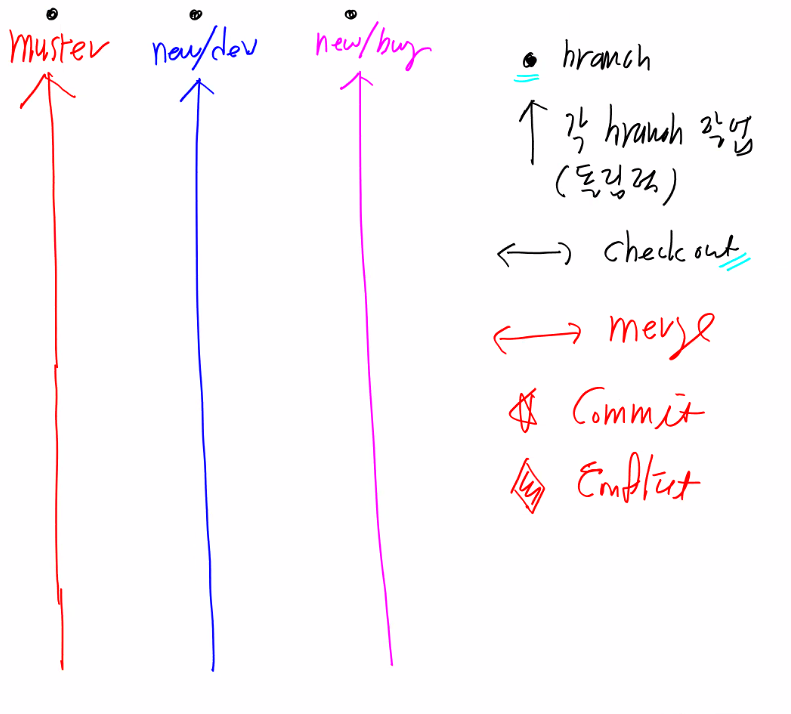 muster
new/dev
new/bug
branch
각 branch 작업
(독립적)
checkout
merge
Commit
Conflict